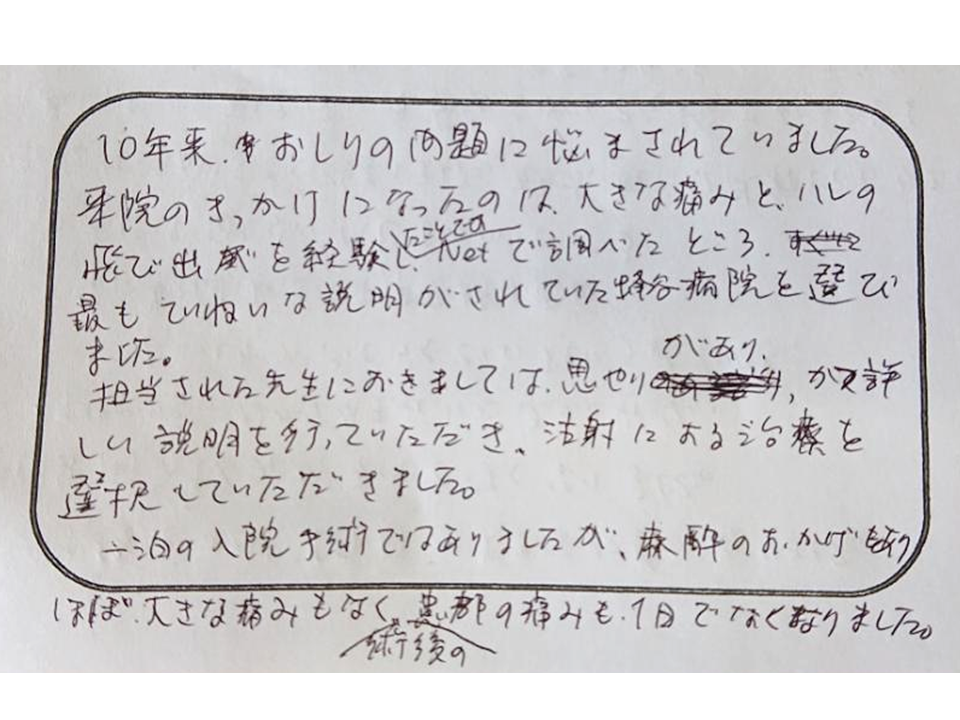 10年来、おしりの問題に悩まされていました。
来院のきっかけになったのは、大きな痛みと、ハレの
飛び出感を経験したことです Netで調べたところ、
最もていねいな説明がされていた 病院を選び
ました。
担当された先生におきましては、思やりがあり、かつ詳
しい説明を行っていただき、注射による治療を
選択していただきました。
一泊の入院手術ではありましたが、麻酔のおかげもあり
ほぼ、大きな痛みもなく、術後の患部の痛みも、1日でなくなりました。